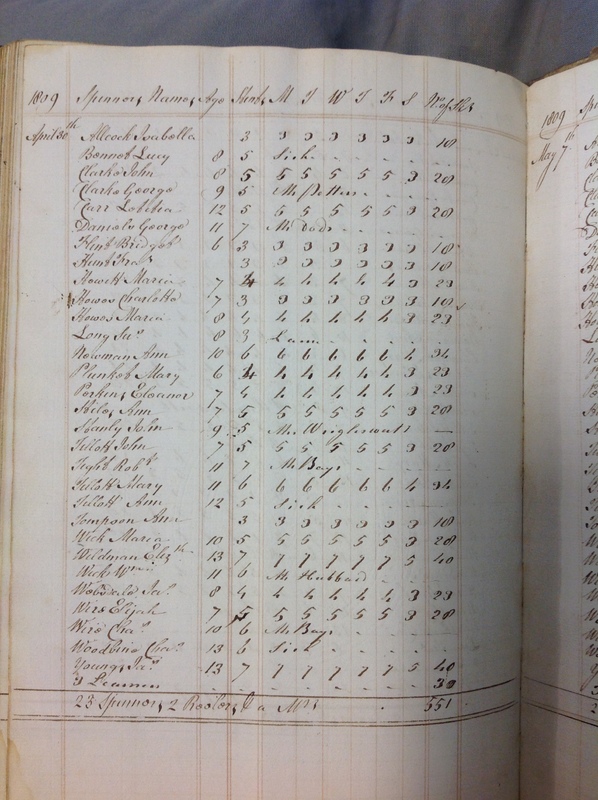 1809 Spinners Names Age Stint M T W T F S No. of Sks
April 30th Allcock Isabella 3 3 3 3 3 3 3 18
Bennet Lucy 8 5 Sick
Clarke John 8 5 5 5 5 5 5 3 28
Clarke George 9 5 Mr Petters
Carr Letitia 12 5 5 5 5 5 5 3 28
Daniels George 11 7 Mr Dads
Flint Bridget 6 3 3 3 3 3 3 3 18
Hunt Fras 3 3 3 3 3 3 3 18
Howett Maria 7 4 4 4 4 4 4 3 23
Howes Charlotte 7 3 3 3 3 3 3 3 18
Howes Maria 8 4 4 4 4 4 4 3 23
Long Sus 8 3 Lame
Newman Ann 10 6 6 6 6 6 6 4 34
Plunket Mary 6 4 4 4 4 4 4 3 23
Perkins Eleanor 7 4 4 4 4 4 4 3 23
Stiles Ann 7 5 5 5 5 5 5 3 28
Stanly John 9 5 Mr
Tillott John 7 5 5 5 5 5 5 3 28
Tight Robt 11 7 Mr Bays
Tillott Mary 11 6 6 6 6 6 6 4 34
Tillott Ann 12 5 Sick
Tompson Ann 3 3 3 3 3 3 3 18
Wick Maria 10 5 5 5 5 5 5 3 28
Wildman Elizth 13 7 7 7 7 7 7 5 40
Wicks Wm 11 6 Mr Hubbard
Jas 8 4 4 4 4 4 4 3 23
Wire Elijah 7 5 5 5 5 5 5 3 28
Wire Chas 10 6 Mr Bays
Woodbine Chas 13 6 Sick
Youngs Jas 13 7 7 7 7 7 7 5 40
3 Learners 30
23 Spinners 2 Reelers & a Mrs 551
1809
May 7th